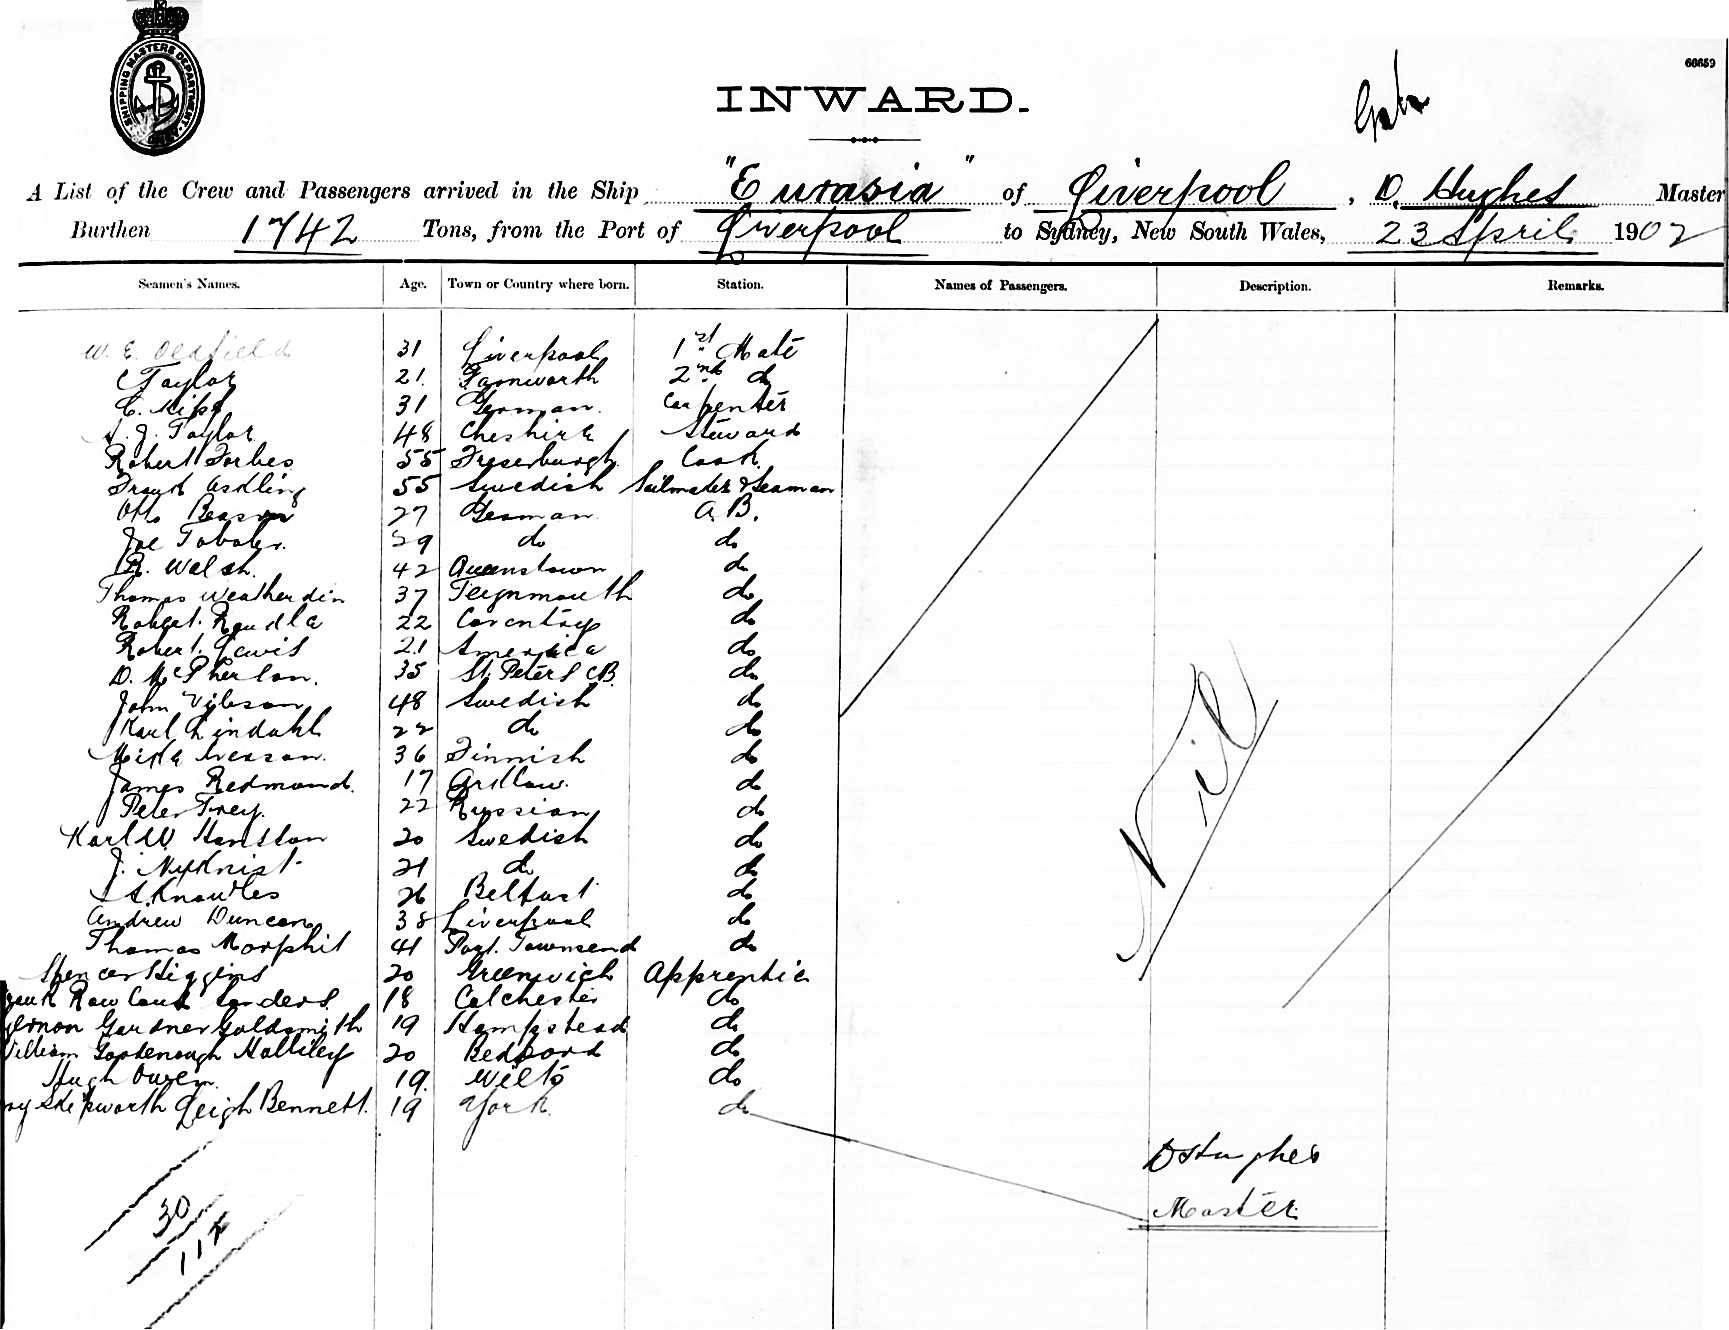 SHIPPING MASTERS DEPARTMENT
66659
INWARD.
A List of the Crew and Passengers arrived in the Ship "Eurasia" of Liverpool, D. Hughes Master
Burthen 1742 Tons, from the Port of Liverpool to Sydney, New South Wales, 23 April 1902
Seamen's Names. Age. Town or Country where born. Station. Names of Passengers. Description. Remarks.
W. E. Oldfield 31 Liverpool 1st Mate
C Taylor 21. Farnworth 2nd do
C. 31 German. Carpenter
J. Taylor 48 Cheshire Steward
Robert Forbes 55 Fraserburgh. Cook.
Frank 55 Swedish Sailmaker & Seaman
Otto 27 German A.B.
Joe 29 do do
R. Walsh. 42 Queenstown do
Thomas Weatherdin 37 Teignmouth do
Robert. 22 Coventry do
Robert. Lewis 21 America do
D. McPherson. 35 St. Peters CB. do
John 48 Swedish do
Karl Lindahl 22 do do
36 Finnish do
James Redmond. 17 Arklow. do
Peter Frey. 22 Russian do
Karl W. Hansson 20 Swedish do
J. 21 do do
Knowles 26 Belfast do
Andrew Duncan 38 Liverpool do
Thomas Morphit 41 Port. Townsend do
Spencer Higgins 20 Greenwich Apprentice
Rowland Sanders. 18 Colchester do
Gardner Goldsmith 19 Hampstead do
William Goodenough Halliley 20 Bedford do
Hugh Owen. 19. Wilts do
Skipworth Leigh Bennett. 19 York. do
Nil
D Hughes
Master
30